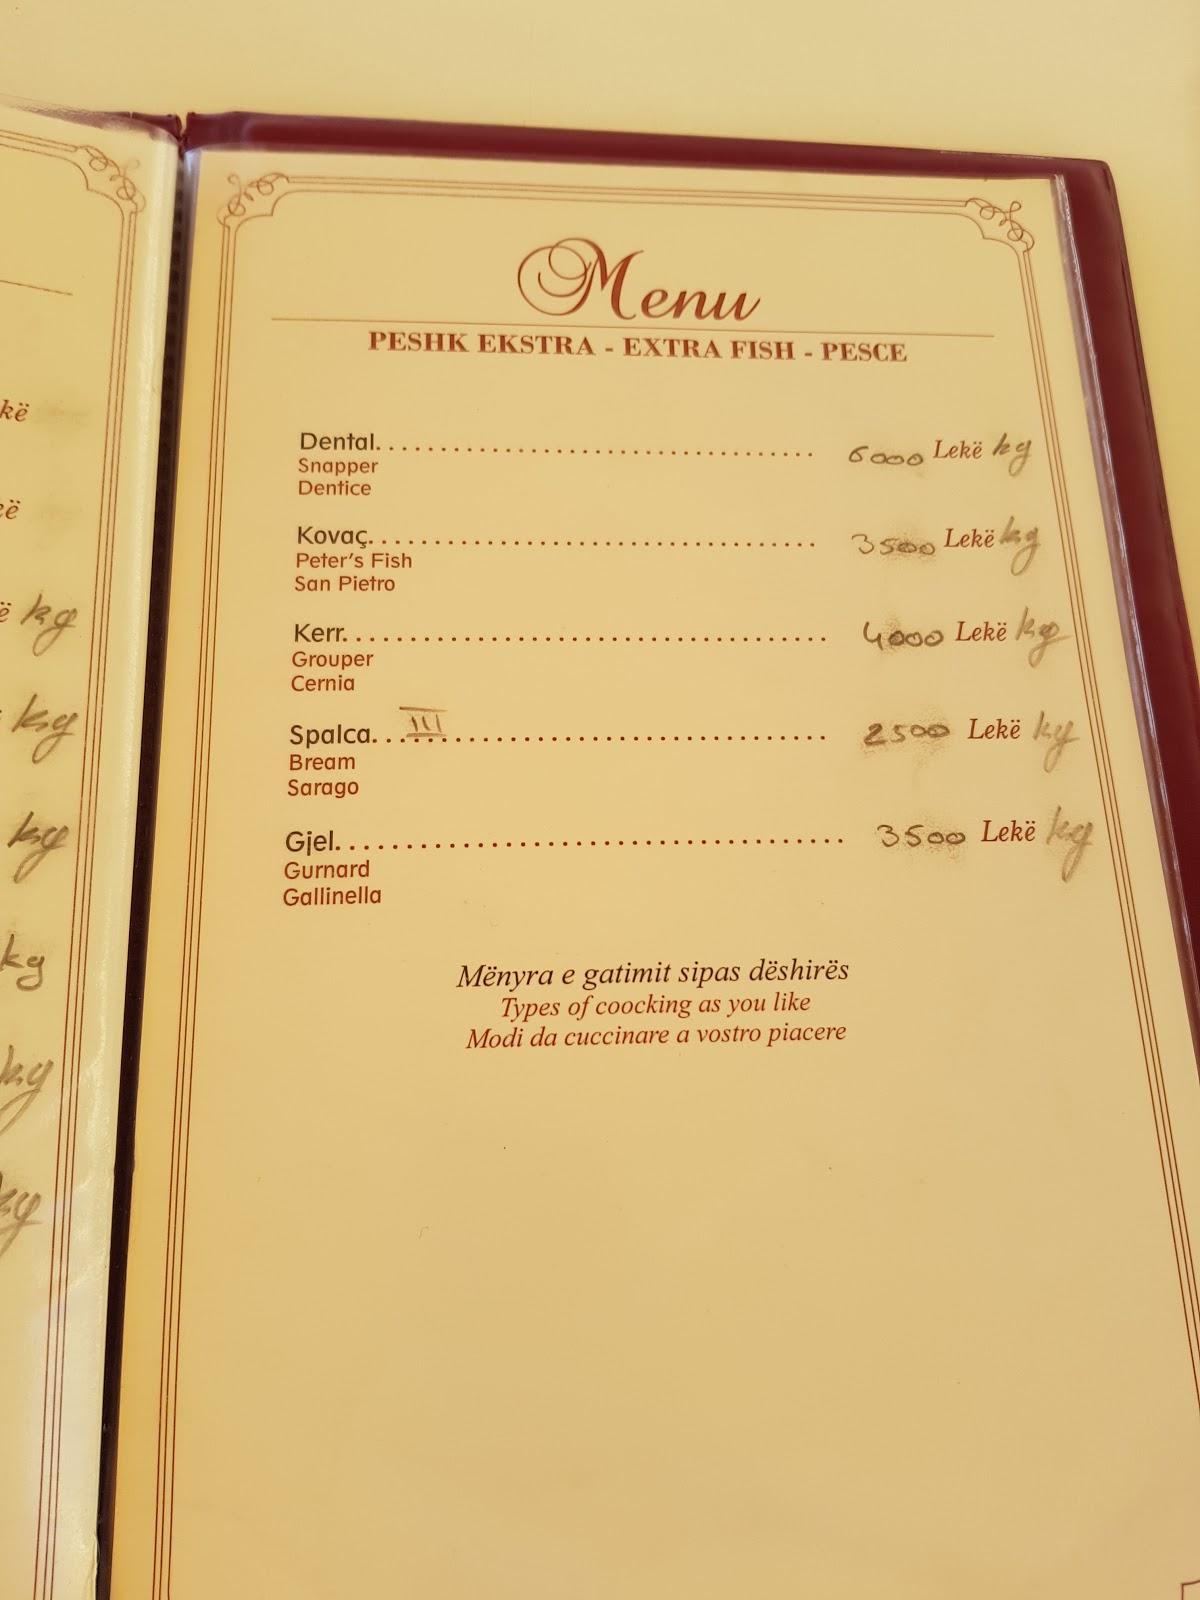 Menu
PESHK EKSTRA - EXTRA FISH - PESCE
Dental.................................... 6000 Lekë kg
Snapper
Dentice
Kovaç.................................... 3500 Lekë kg
Peter's Fish
San Pietro
Kerr...................................... 4000 Lekë kg
Grouper
Cernia
Spalca... III .............................. 2500 Lekë kg
Bream
Sarago
Gjel....................................... 3500 Lekë kg
Gurnard
Gallinella
Mënyra e gatimit sipas dëshirës
Types of coocking as you like
Modi da cuccinare a vostro piacere
kë
ë
ë kg
kg
kg
kg
kg
kg